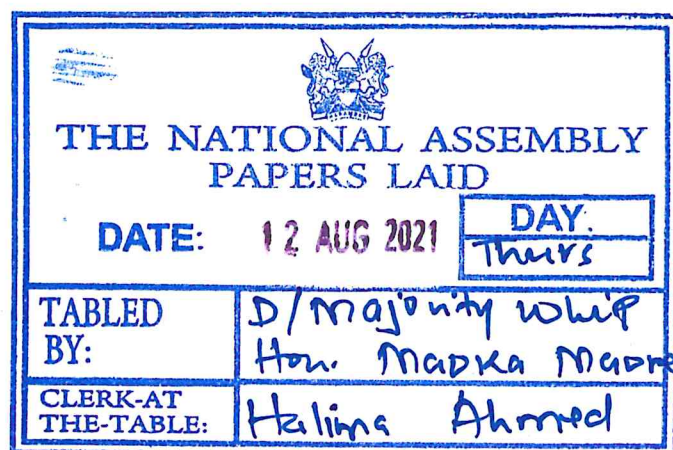 THE NATIONAL ASSEMBLY
PAPERS LAID
DATE: 12 AUG 2021
DAY:
Thurs
TABLED BY:
D/Majority Whip
Hon.
CLERK-AT THE-TABLE:
Halima Ahmed